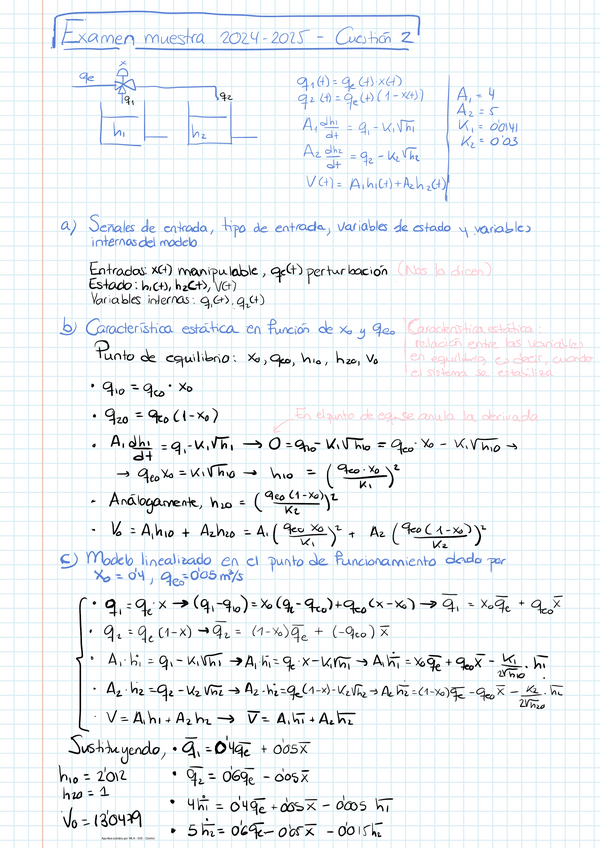 Examen muestra 2024-2025 - Cuestión 2
x
qe
q₁
q2
h₁
h₂
q₁(t) = qe(t)·x(t)
q2(t) = qe(t)(1-x(t))
A₁ dh₁/dt = q₁ - K₁√h₁
A₂ dh₂/dt = q₂ - K₂√h₂
V(t) = A₁h₁(t) + A₂h₂(t)
A₁ = 4
A₂ = 5
K₁ = 0'0141
K₂ = 0'03
a) Señales de entrada, tipo de entrada, variables de estado y variables
internas del modelo
Entradas: x(t) manipulable, qe(t) perturbación (Nos la dicen)
Estado: h₁(t), h₂(t), V(t)
Variables internas: q₁(t), q₂(t)
b) Característica estática en función de x₀ y qe₀
Característica estática:
relación entre las variables
en equilibrio, es decir, cuando
el sistema se estabiliza
Punto de equilibrio: x₀, qe₀, h₁₀, h₂₀, V₀
• q₁₀ = qe₀ · x₀
• q₂₀ = qe₀(1-x₀)
En el punto de eq. se anula la derivada
• A₁ dh₁/dt = q₁ - K₁√h₁ → 0 = q₁₀ - K₁√h₁₀ = qe₀ · x₀ - K₁√h₁₀ →
→ qe₀x₀ = K₁√h₁₀ → h₁₀ = (qe₀·x₀/K₁)²
• Análogamente, h₂₀ = (qe₀(1-x₀)/K₂)²
• V₀ = A₁h₁₀ + A₂h₂₀ = A₁(qe₀ x₀/K₁)² + A₂(qe₀(1-x₀)/K₂)²
c) Modelo linealizado en el punto de funcionamiento dado por
x₀ = 0'4, qe₀ = 0'05 m³/s
• q₁ = qe·x → (q₁-q₁₀) = x₀(qe-qe₀) + qe₀(x-x₀) → q̄₁ = x₀q̄e + qe₀x̄
• q₂ = qe(1-x) → q̄₂ = (1-x₀)q̄e + (-qe₀)x̄
• A₁·ḣ₁ = q₁ - K₁√h₁ → A₁·ḣ₁ = qe·x - K₁√h₁ → A₁ḣ̄₁ = x₀q̄e + qe₀x̄ - K₁/2√h₁₀ · h̄₁
• A₂·ḣ₂ = q₂ - K₂√h₂ → A₂·ḣ₂ = qe(1-x) - K₂√h₂ → A₂ḣ̄₂ = (1-x₀)q̄e - qe₀x̄ - K₂/2√h₂₀ · h̄₂
• V = A₁h₁ + A₂h₂ → V̄ = A₁h̄₁ + A₂h̄₂
Sustituyendo, • q̄₁ = 0'4q̄e + 0'05x̄
h₁₀ = 2'012
• q̄₂ = 0'6q̄e - 0'05x̄
h₂₀ = 1
• 4ḣ̄₁ = 0'4q̄e + 0'05x̄ - 0'005 h̄₁
V₀ = 13'0479
• 5ḣ̄₂ = 0'6q̄e - 0'05x̄ - 0'015h̄₂